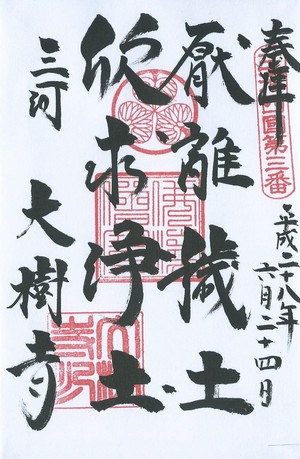 奉拝
第三番
平成二十八年
六月二十四日
厭離穢土
欣求浄土
三河
大樹寺